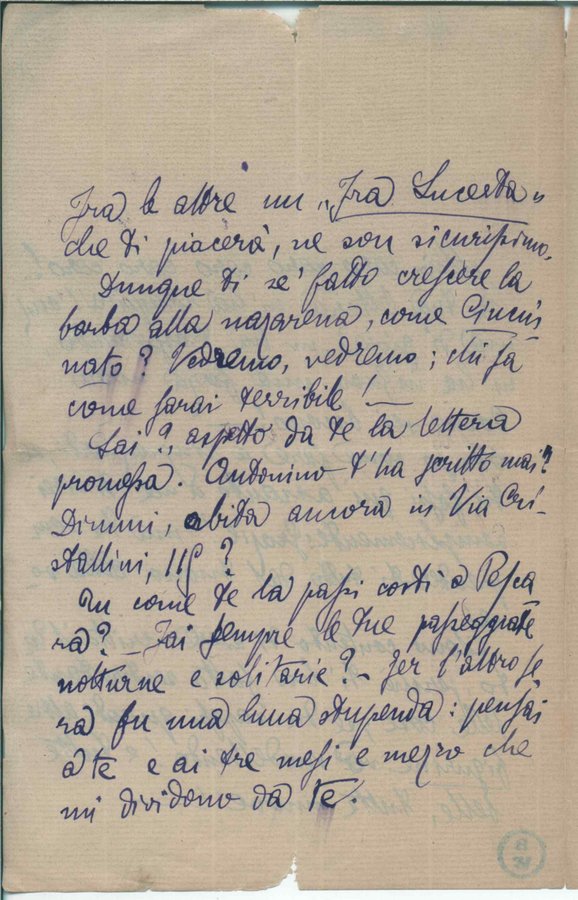 Fra le altre un „Fra Lucerta„
che ti piacerà, ne son sicurissimo.
Dunque ti se' fatto crescere la
barba alla nazarena, come Cincin
nato? Vedremo, vedremo; chi sa
come sarai terribile!—
Sai?, aspetto da te la lettera
promessa. Antonino t'ha scritto mai?
Dimmi, abita ancora in Via Cri-
stallini,
Tu come te la passi costì a Pesca
ra? – Fai sempre le tue passeggiate
notturne e solitarie? – Jer l'altro se
ra fu una luna stupenda: pensai
a te e ai tre mesi e mezzo che
mi dividono da te.